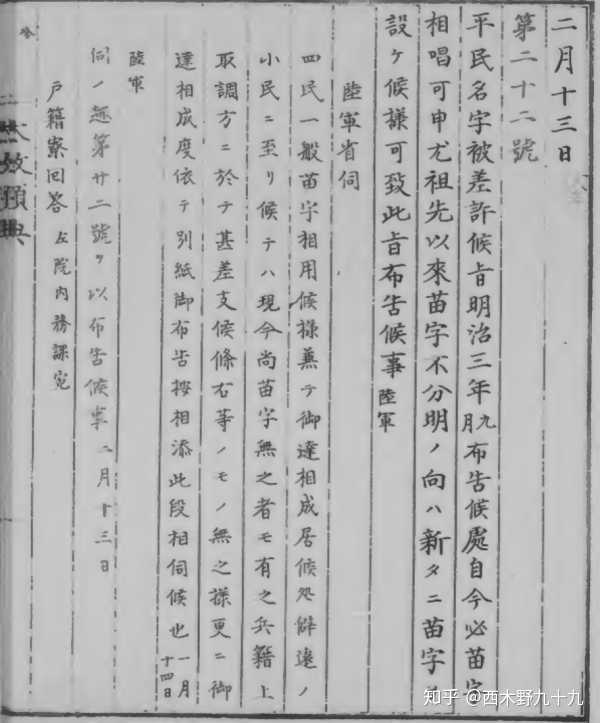 二月十三日
第二十二號
平民名字被差許候旨明治三年九月布告候處自今必苗字
相唱可申尤祖先以來苗字不分明ノ向ハ新タニ苗字
設ケ候様可致此旨布告候事 陸軍
陸軍省伺
四民一般苗字相用候様兼テ御達相成居候処僻遠ノ
小民ニ至リ候テハ現今尚苗字無之者モ有之兵籍上
取調方ニ於テ甚差支候條右等ノモノ無之様更ニ御
達相成度依テ別紙御布告按相添此段相伺候也 一月十四日
陸軍
伺ノ趣第廿二號ヲ以布告候事 二月十三日
戸籍寮回答 左院内務課宛
知乎 @西木野九十九